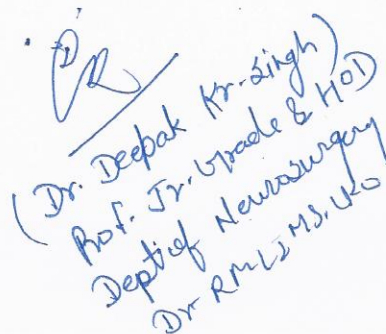 (Dr. Deepak Kr. Singh)
Prof. Jr. Grade & HOD
Dept of Neurosurgery
Dr RMLIMS. LKO